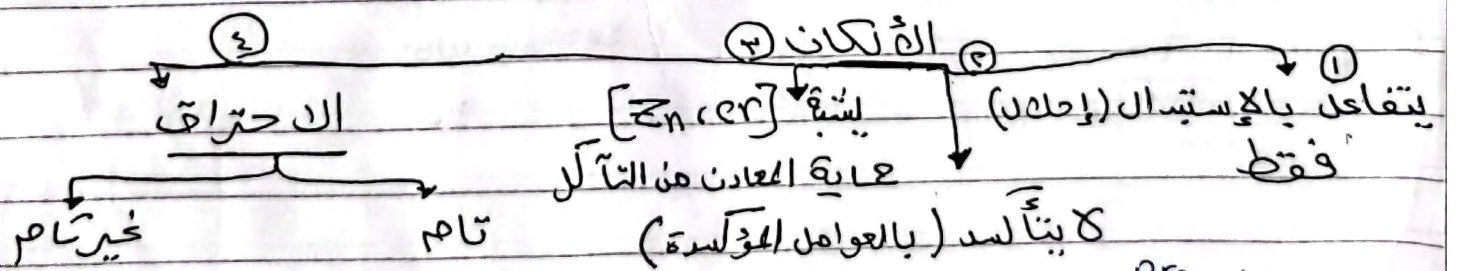 الألكان
① يتفاعل بالإستبدال (إحلال) فقط
② لا يتأكسد (بالعوامل المؤكسدة)
③ يشبة [Zn، cr]
حماية المعادن من التآكل
④ الاحتراق
تام
غير تام